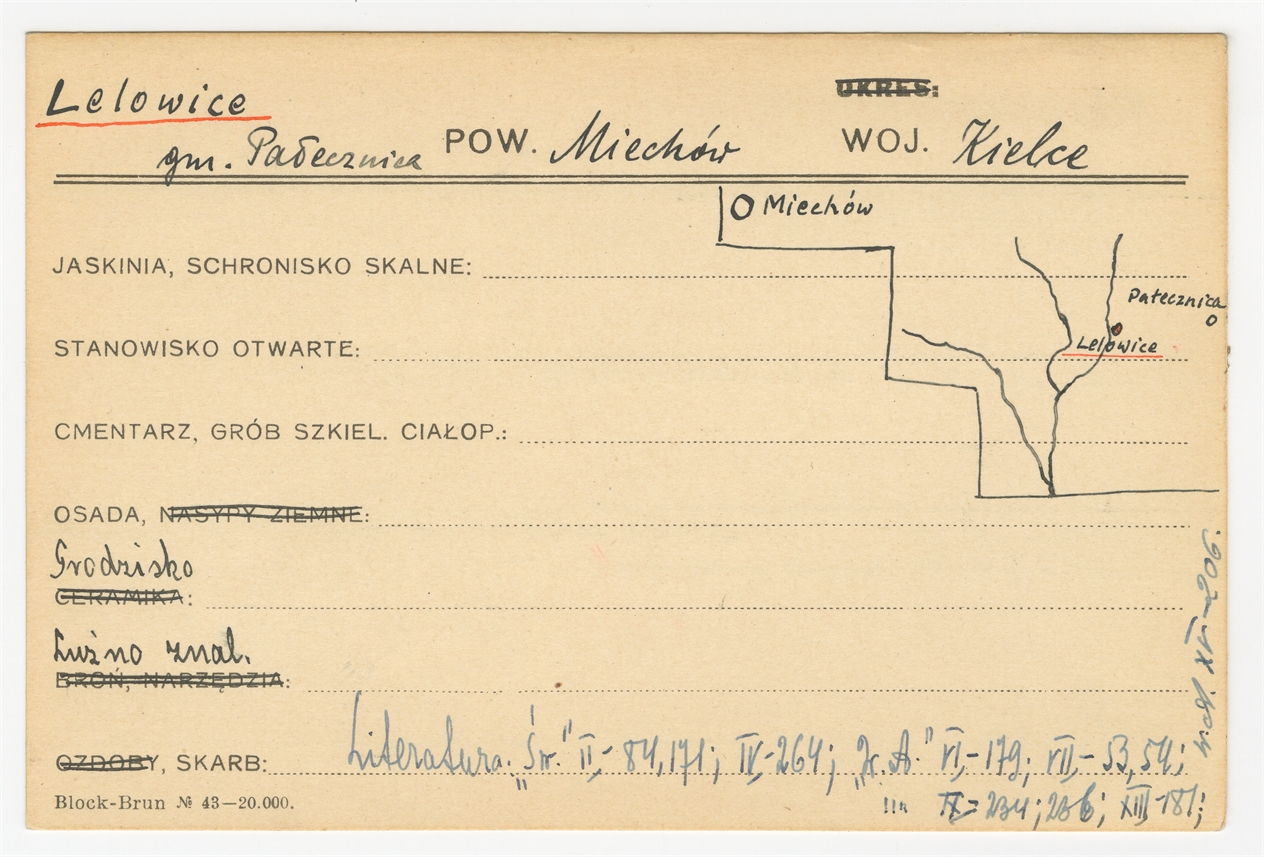 Lelowice
OKRES:
gm. Pałecznica POW. Miechów WOJ. Kielce
Miechów
JASKINIA, SCHRONISKO SKALNE:
Pałecznica
STANOWISKO OTWARTE:
Lelowice
CMENTARZ, GRÓB SZKIEL. CIAŁOP.:
OSADA, NASYPY ZIEMNE:
Grodzisko
CERAMIKA:
Luźno znal.
BROŃ, NARZĘDZIA:
Literatura. „Św." II,- 84,171; IV,-264; „W.A." VI,-179; VII,- 53,54;
OZDOBY, SKARB:
Block-Brun № 43—20.000.
"" IX-234; 236; XIII-181;
W.A. XVI-206.